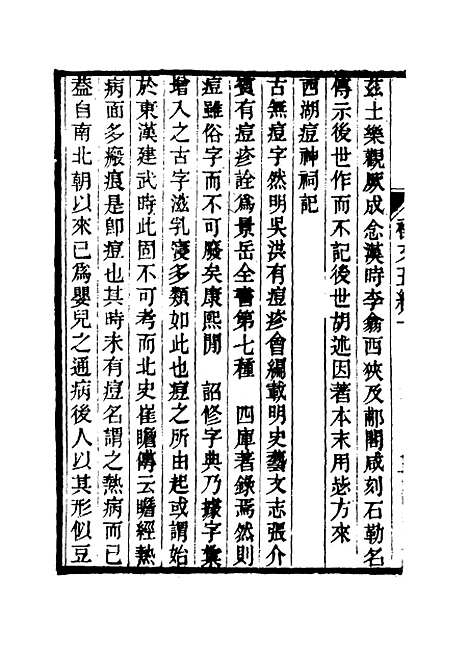 茲土樂觀厥成念漢時李翕西狹及郙閣咸刻石勒名
傳示後世作而不記後世胡述因著本末用毖方來
西湖痘神祠記
古無痘字然明吳洪有痘疹會編載明史藝文志張介
賓有痘疹詮爲景岳全書第七種　四庫著錄焉然則
痘雖俗字而不可廢矣康熙閒　詔修字典乃據字彙
增入之古字滋乳寖多類如此也痘之所由起或謂始
於東漢建武時此固不可考而北史崔瞻傳云瞻經熱
病面多瘢痕是卽痘也其時未有痘名謂之熱病而已
葢自南北朝以來已爲嬰兒之通病後人以其形似豆